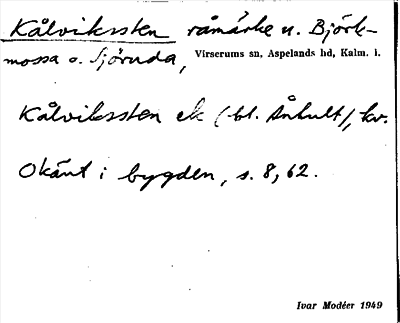 Kålvikssten råmärke u. Björk-
mossa o. Sjöruda, Virserums sn, Aspelands hd, Kalm. l.
Kålvikssten ek (bl. Ånhult), kv.
Okänt i bygden, s. 8, 62.
Ivar Modéer 1949